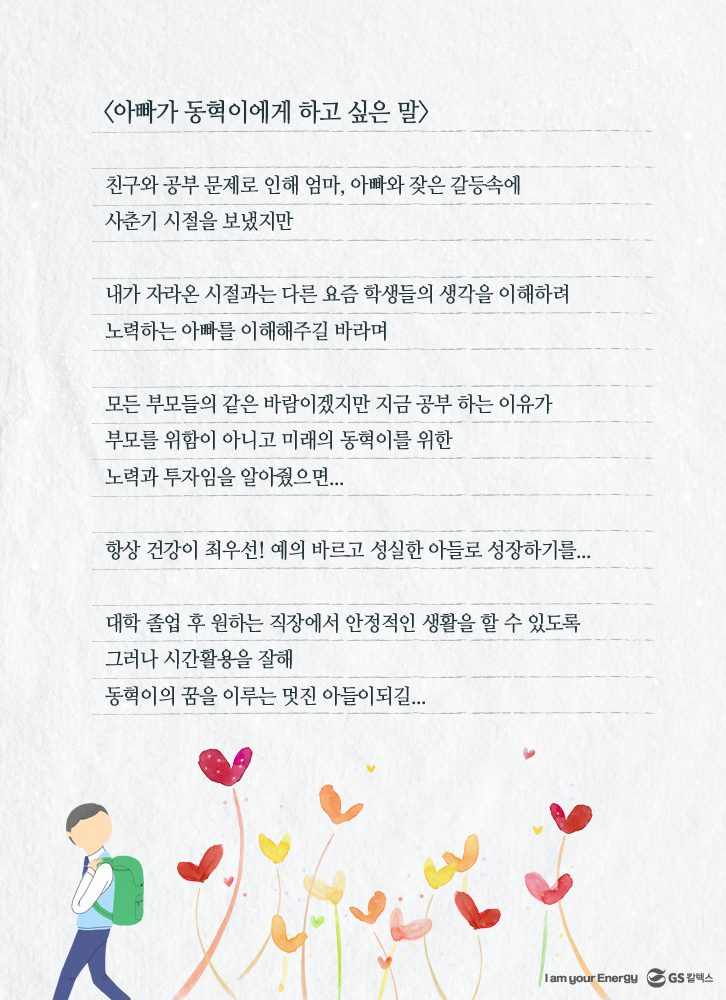 〈아빠가 동혁이에게 하고 싶은 말〉
친구와 공부 문제로 인해 엄마, 아빠와 잦은 갈등속에
사춘기 시절을 보냈지만
내가 자라온 시절과는 다른 요즘 학생들의 생각을 이해하려
노력하는 아빠를 이해해주길 바라며
모든 부모들의 같은 바람이겠지만 지금 공부 하는 이유가
부모를 위함이 아니고 미래의 동혁이를 위한
노력과 투자임을 알아줬으면...
항상 건강이 최우선! 예의 바르고 성실한 아들로 성장하기를...
대학 졸업 후 원하는 직장에서 안정적인 생활을 할 수 있도록
그러나 시간활용을 잘해
동혁이의 꿈을 이루는 멋진 아들이되길...
I am your Energy GS칼텍스